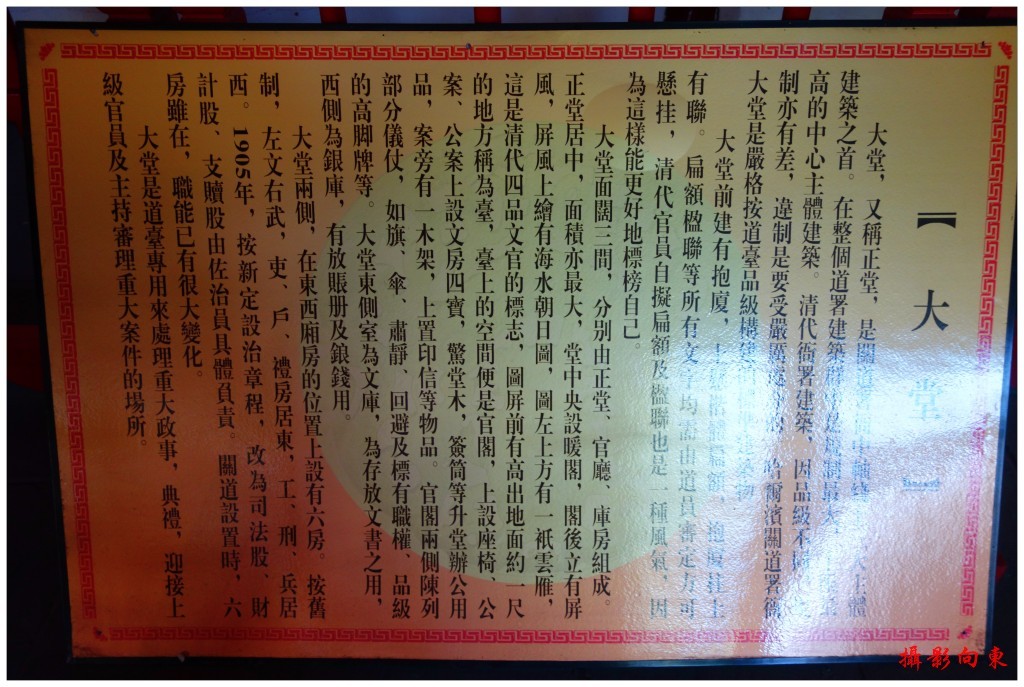 【大堂】
大堂，又稱正堂，是關道
建築之首。在整個道署建築群中
高的中心主體建築。清代衙署建築，因品級不同
制亦有差，違制是要受嚴厲 哈爾濱關道署衙
大堂是嚴格按道臺品級構建的
大堂前建有抱廈，上 抱廈柱上
有聯。扁額楹聯等所有文字均需由道員審定方可
懸挂，清代官員自擬扁額及楹聯也是一種風氣，因
為這樣能更好地標榜自己。
大堂面闊三間，分別由正堂、官廳、庫房組成。
正堂居中，面積亦最大，堂中央設暖閣，閣後立有屏
風，屏風上繪有海水朝日圖，圖左上方有一祇雲雁，
這是清代四品文官的標志，圖屏前有高出地面約一尺
的地方稱為臺，臺上的空間便是官閣，上設座椅、公
案、公案上設文房四寶，驚堂木，簽筒等升堂辦公用
品，案旁有一木架，上置印信等物品。官閣兩側陳列
部分儀仗，如旗、傘、肅靜、回避及標有職權、品級
的高脚牌等。大堂東側室為文庫，為存放文書之用，
西側為銀庫，有放賬册及銀錢用。
大堂兩側，在東西廂房的位置上設有六房。按舊
制，左文右武，吏、戶、禮房居東，工、刑、兵居
西。1905年，按新定設治章程，改為司法股、財
計股、支贖股由佐治員具體負責。關道設置時，六
房雖在，職能已有很大變化。
大堂是道臺專用來處理重大政事，典禮，迎接上
級官員及主持審理重大案件的場所。
攝影向東